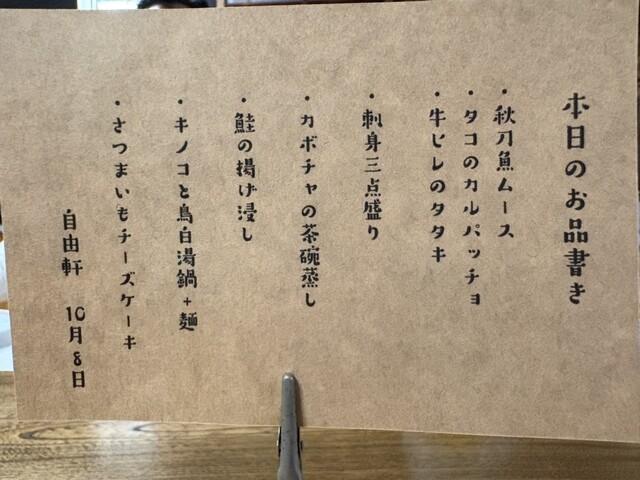 本日のお品書き
・秋刀魚ムース
・タコのカルパッチョ
・牛ヒレのタタキ
・刺身三点盛り
・カボチャの茶碗蒸し
・鮭の揚げ浸し
・キノコと鳥白湯鍋+麺
・さつまいもチーズケーキ
自由軒 10月8日